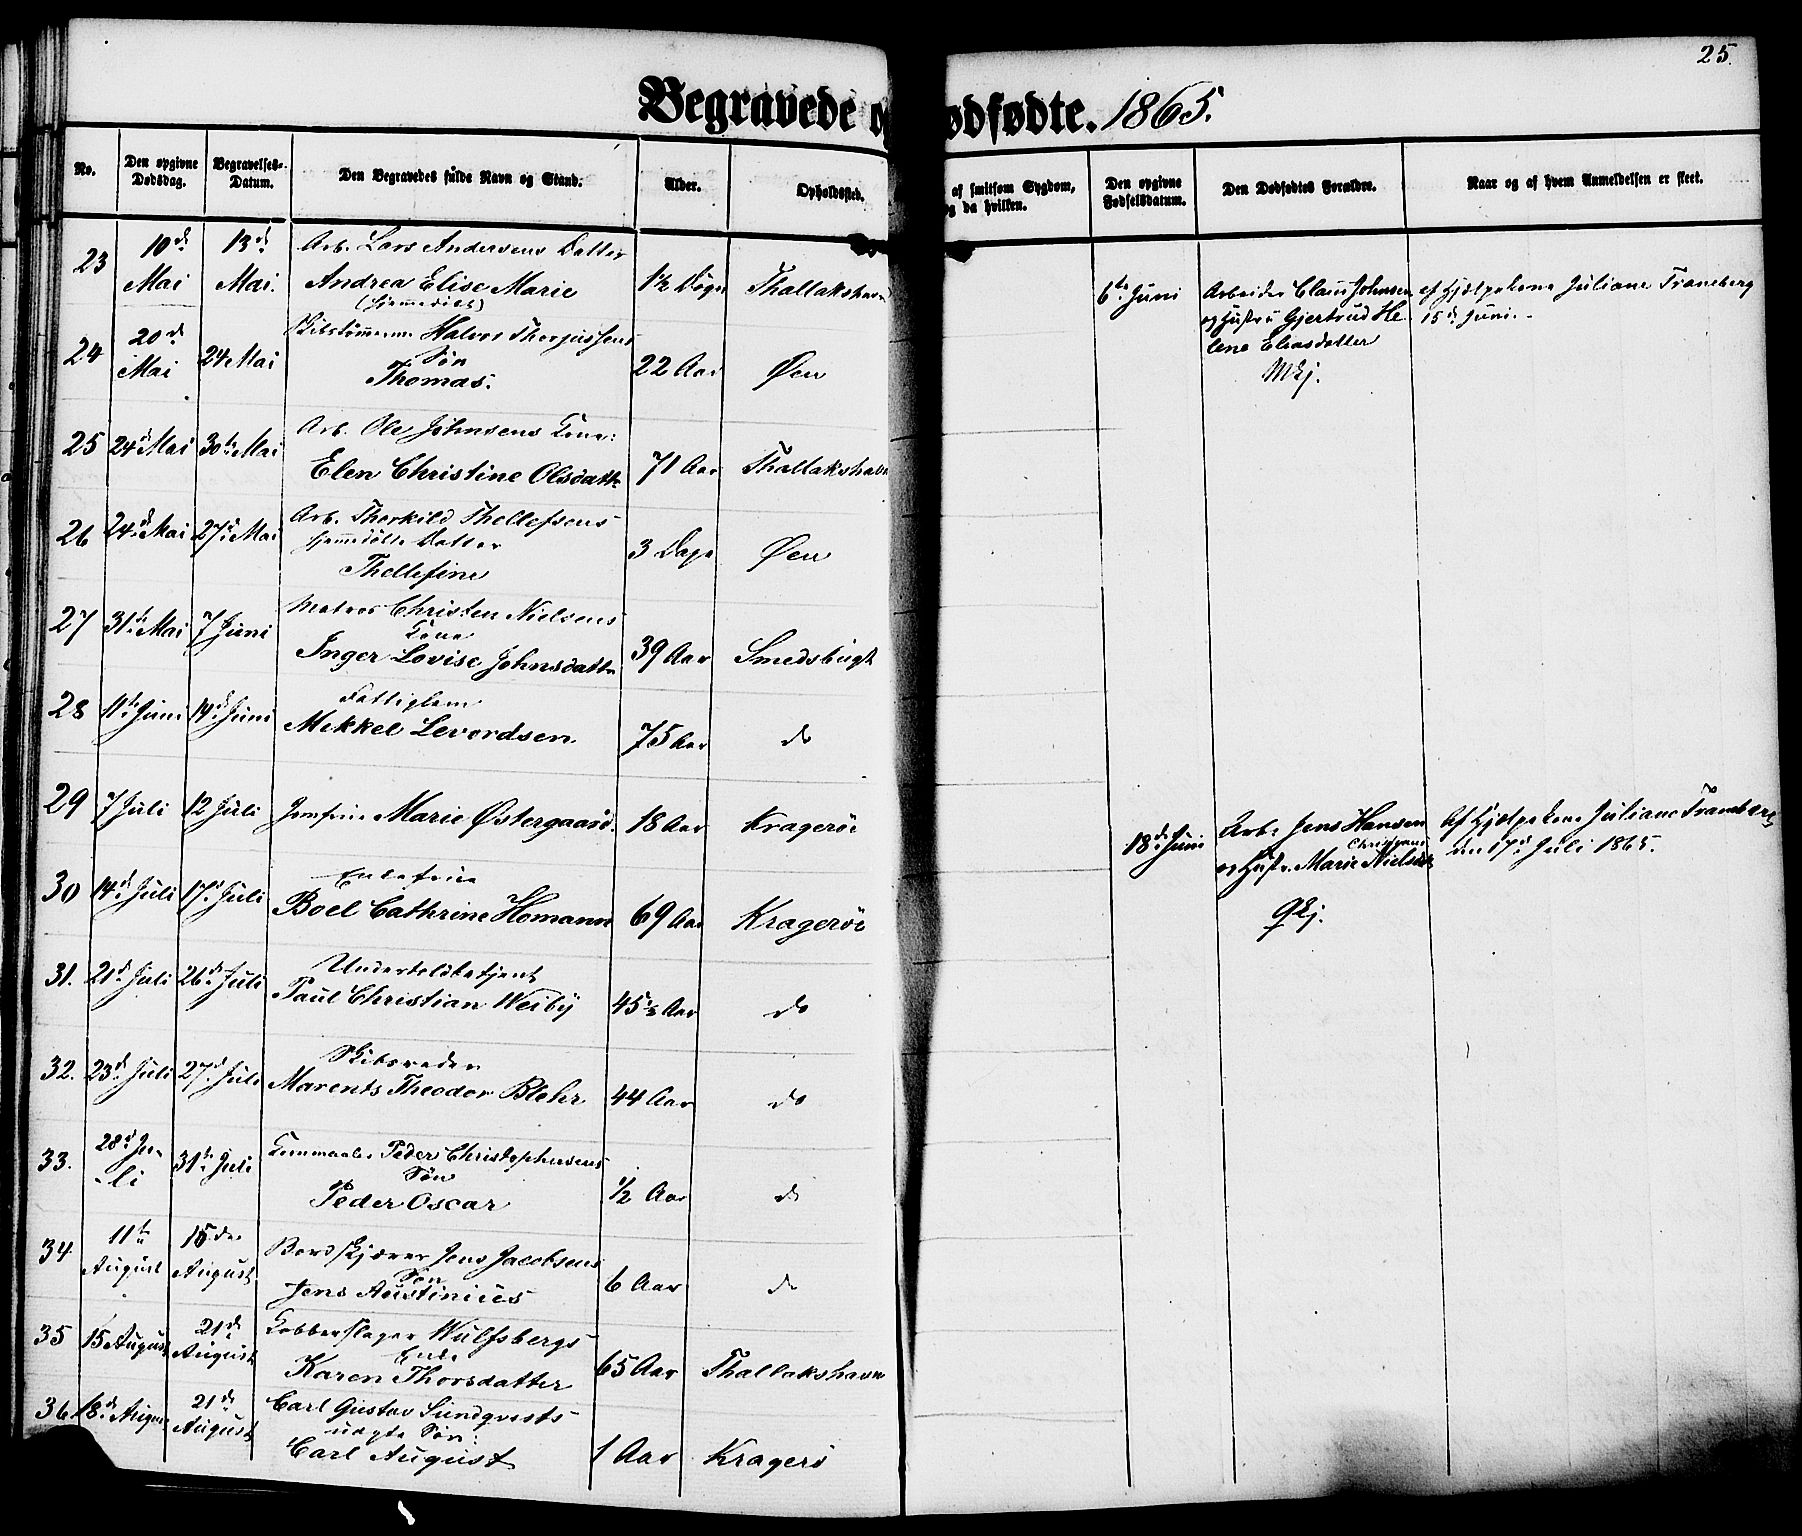 25.
Begravede o ødfødte. 1865.
No.
Den opgivne Dødsdag.
Begravelses-Datum.
Den Begravedes fulde Navn og Stand.
Alder.
Opholdssted.
af smitsom Sygdom,
og da hvilken.
Den opgivne Fødselsdatum.
Den Dødfødtes Forældre.
Naar og af hvem Anmeldelsen er skeet.
23 10de Mai 13de Mai. Arb. Lars Andersens Datter
Andrea Elise Marie
(hjemmedøbt)
1½ Døgn Thallakshavn
24 20de Mai 24 Mai Skibstømmerm. Halvor Thorjussens
Søn
Thomas.
22 Aar Øen
25 24de Mai 30te Mai Arb. Ole Johnsens Kone:
Elen Christine Olsdattr
71 Aar Thallakshavn
26 24de Mai 27de Mai Arb. Thorkild Thellefsens
hjemmedøbte Datter
Thellefine
3 Dage Øen
27 31te Mai 7 Juni Matros Christen Nielsens
Kone
Inger Lovise Johnsdattr
39 Aar Smedsbugt
28 11te Juni 14de Juni Fattiglem
Mekkel Levordsen
75 Aar do
29 7 Juli 12 Juli Jomfrue Marie Østergaard. 18 Aar Kragerøe
30 14de Juli 17de Juli Enkefrue
Boel Cathrine Homann
69 Aar Kragerøe
31. 21de Juli 26de Juli Undertoldbetjent
Paul Christian Weiby
45½ Aar do
32. 23de Juli 27de Juli Skibsreder
Marents Theodor Blehr
44 Aar do
33. 28de Ju-li 31te Juli Peder Christophersens
Søn
Peder Oscar
½ Aar do
34 11te August 15de August Bordskjærer Jens Jacobsens
Søn
Jens Austinius
6 Aar do
35 15 August 21de August Kobberslager Wulfsbergs
Enke
Karen Thorsdatter
65 Aar Thallakshavn
36 18de August 21de August Carl Gustav Sundqvists
uægte Søn:
Carl August
1 Aar Kragerø
6te Juni
Arbeider Claus Johnsen
og Hustru Gjertrud He-
lene Eliasdatter
Mkj.
af Hjælpekone Juliane Traneberg
15de Juni.
18de Juni
Arb. Jens Hansen
og Hustr. Marie Christiane Nielsdtr
Qkj.
Af Hjælpekone Juliane Traneberg
den 17de Juli 1865.